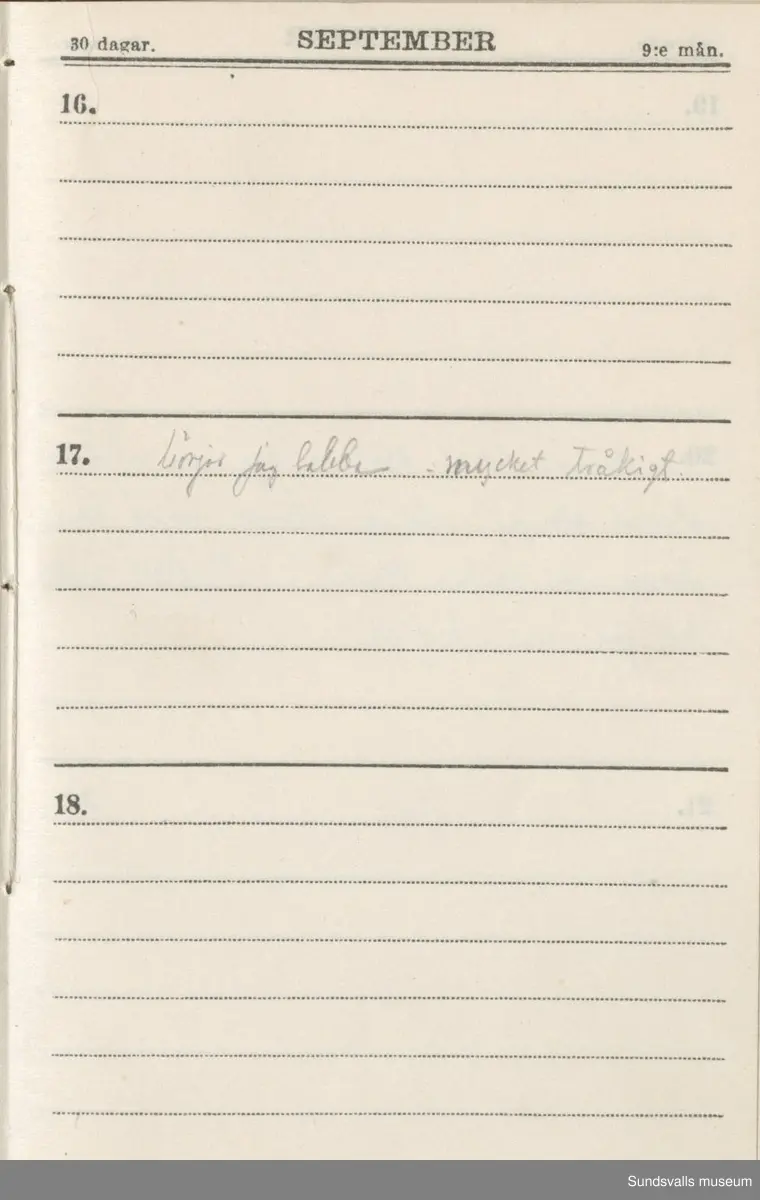 30 dagar. SEPTEMBER 9:e mån.
16.
17. börjar jag labba - mycket tråkigt.
18.
Sundsvalls museum